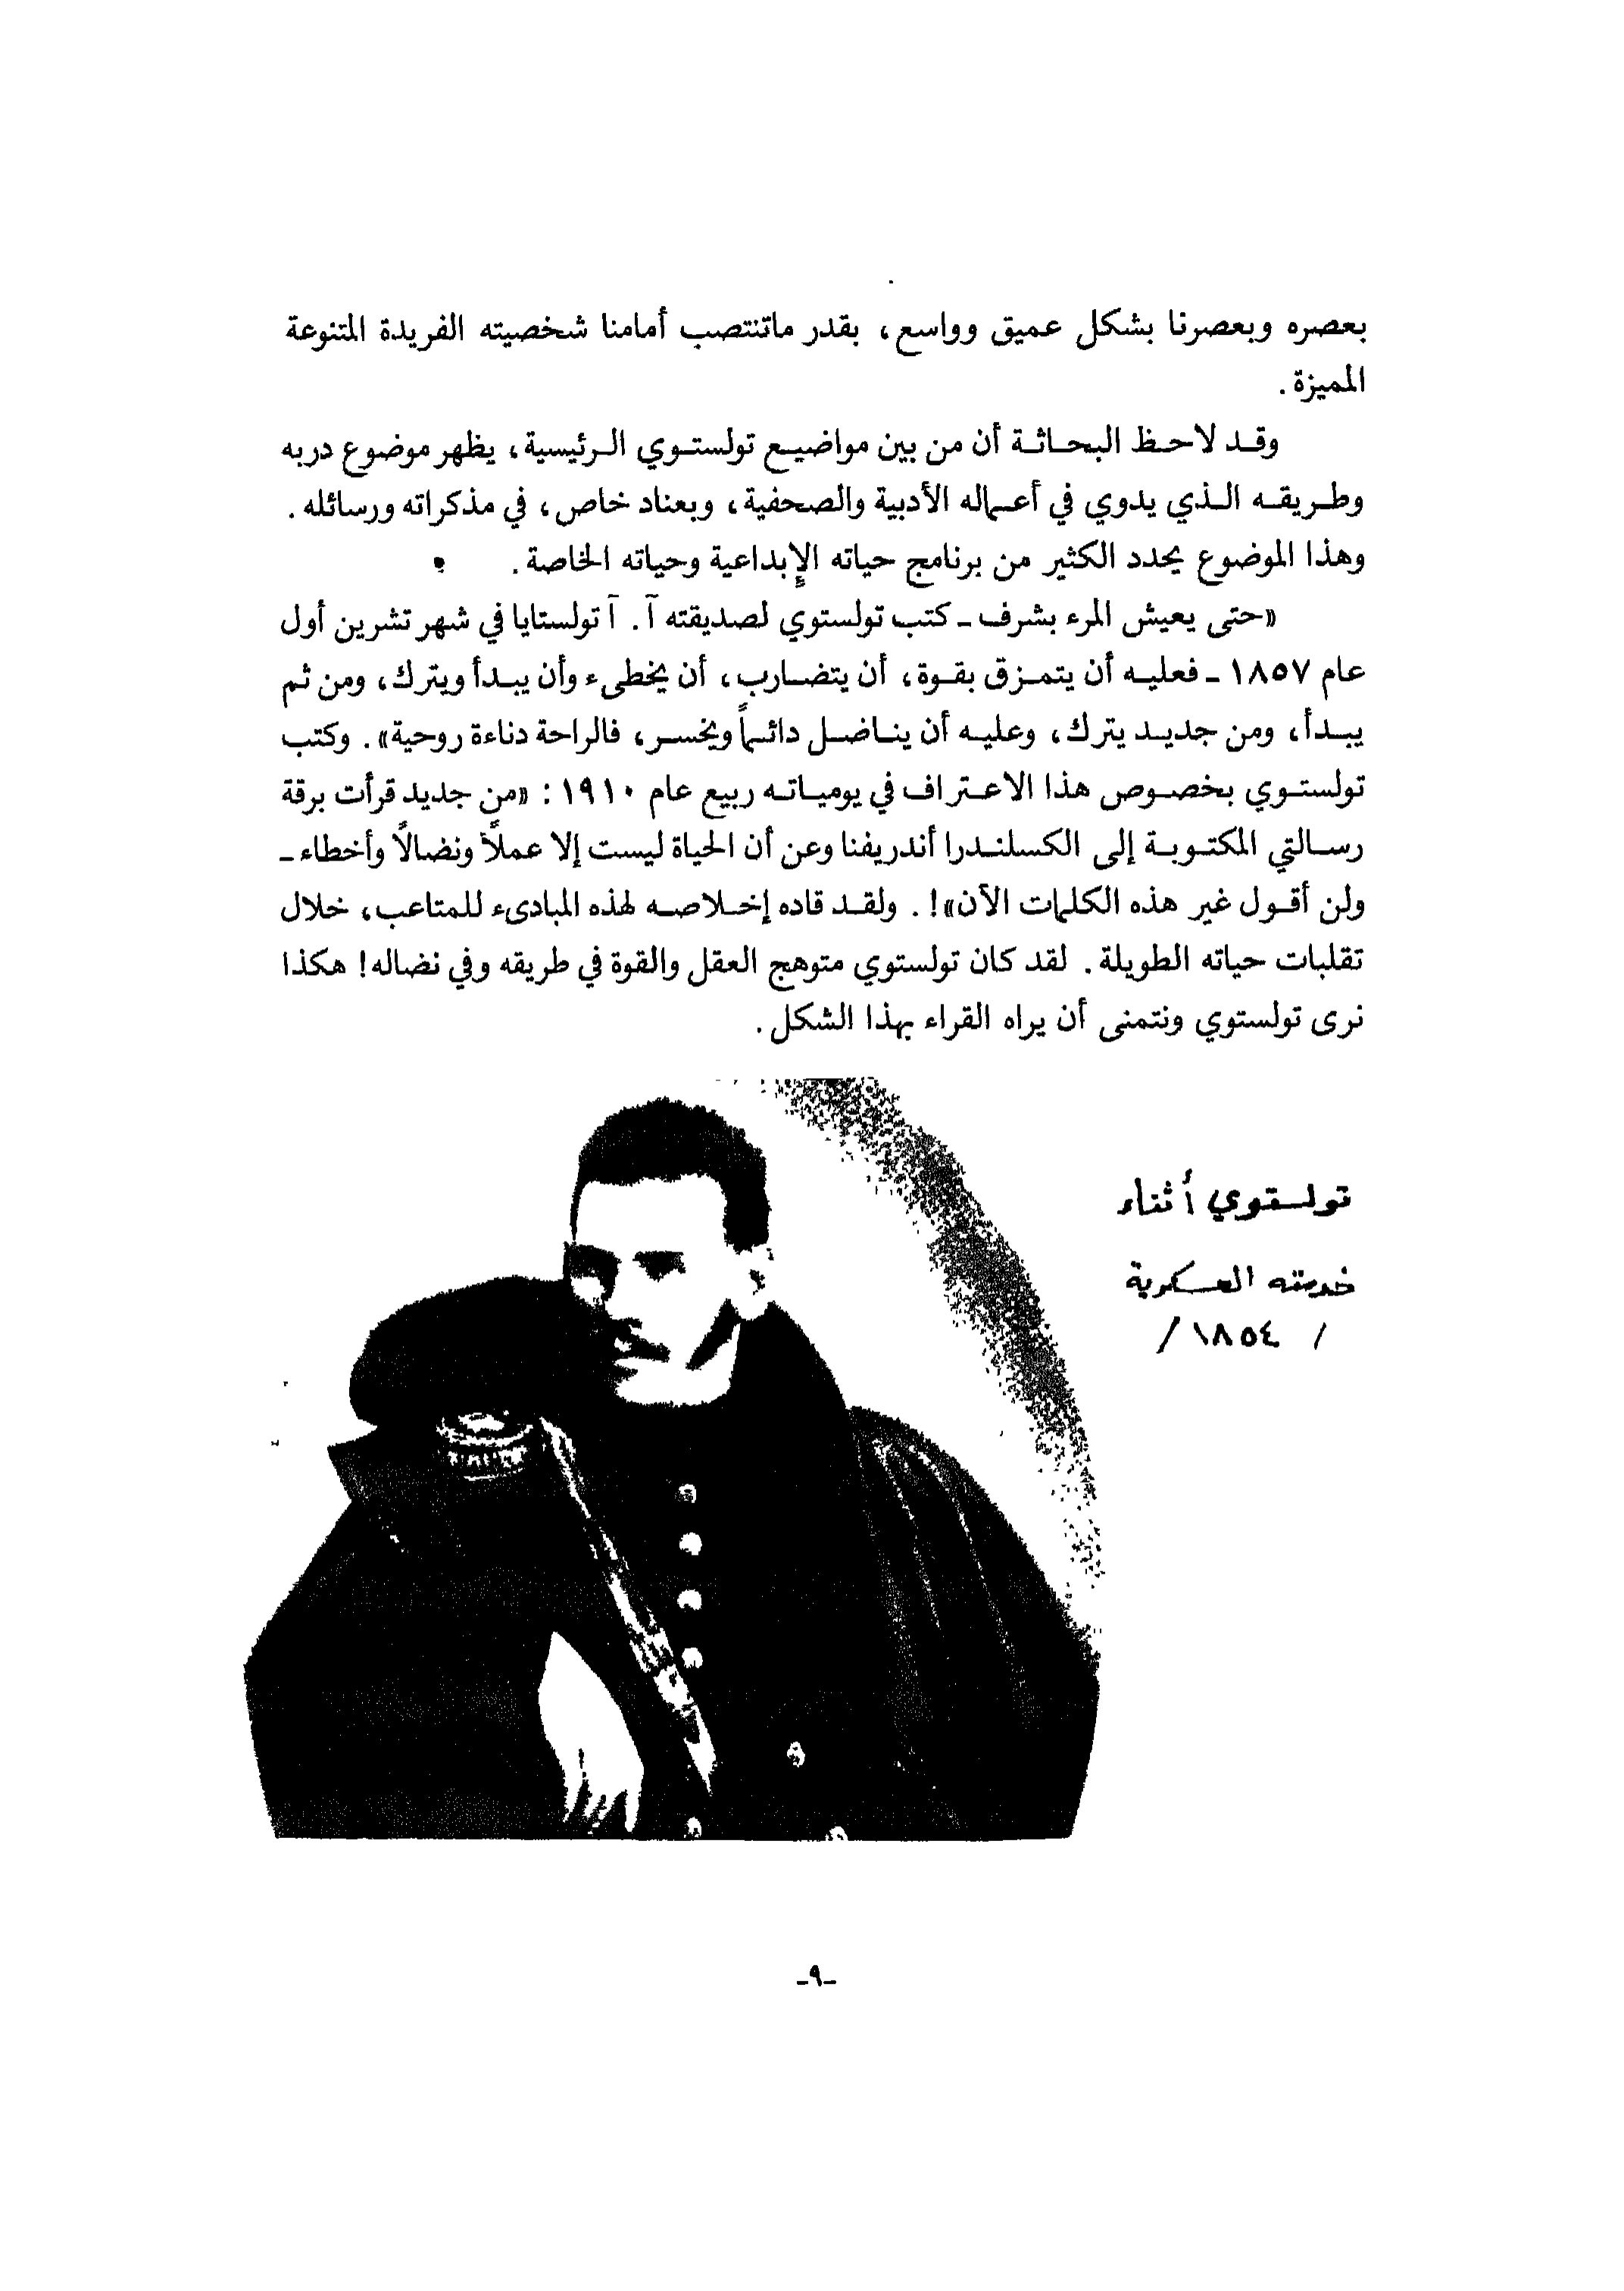 بعصره وبعصرنا بشكل عميق وواسع، بقدر ماتنتصب أمامنا شخصيته الفريدة المتنوعة
المميزة.
وقد لاحظ البحاثة أن من بين مواضيع تولستوي الرئيسية، يظهر موضوع دربه
وطريقه الذي يدوي في أعماله الأدبية والصحفية، وبعناد خاص، في مذكراته ورسائله.
وهذا الموضوع يحدد الكثير من برنامج حياته الإبداعية وحياته الخاصة.
«حتى يعيش المرء بشرف - كتب تولستوي لصديقته آ. آ تولستايا في شهر تشرين أول
عام ١٨٥٧ - فعليه أن يتمزق بقوة، أن يتضارب، أن يخطىء وأن يبدأ ويترك، ومن ثم
يبدأ، ومن جديد يترك، وعليه أن يناضل دائماً ويخسر، فالراحة دناءة روحية». وكتب
تولستوي بخصوص هذا الاعتراف في يومياته ربيع عام ١٩١٠: «من جديد قرأت برقة
رسالتي المكتوبة إلى الكسلندرا أندريفنا وعن أن الحياة ليست إلا عملاً ونضالاً وأخطاء -
ولن أقول غير هذه الكلمات الآن»!. ولقد قاده إخلاصه لهذه المبادىء للمتاعب، خلال
تقلبات حياته الطويلة. لقد كان تولستوي متوهج العقل والقوة في طريقه وفي نضاله! هكذا
نرى تولستوي ونتمنى أن يراه القراء بهذا الشكل.
تولستوي أثناء
خدمته العسكرية
/ ١٨٥٤ /
-٩-